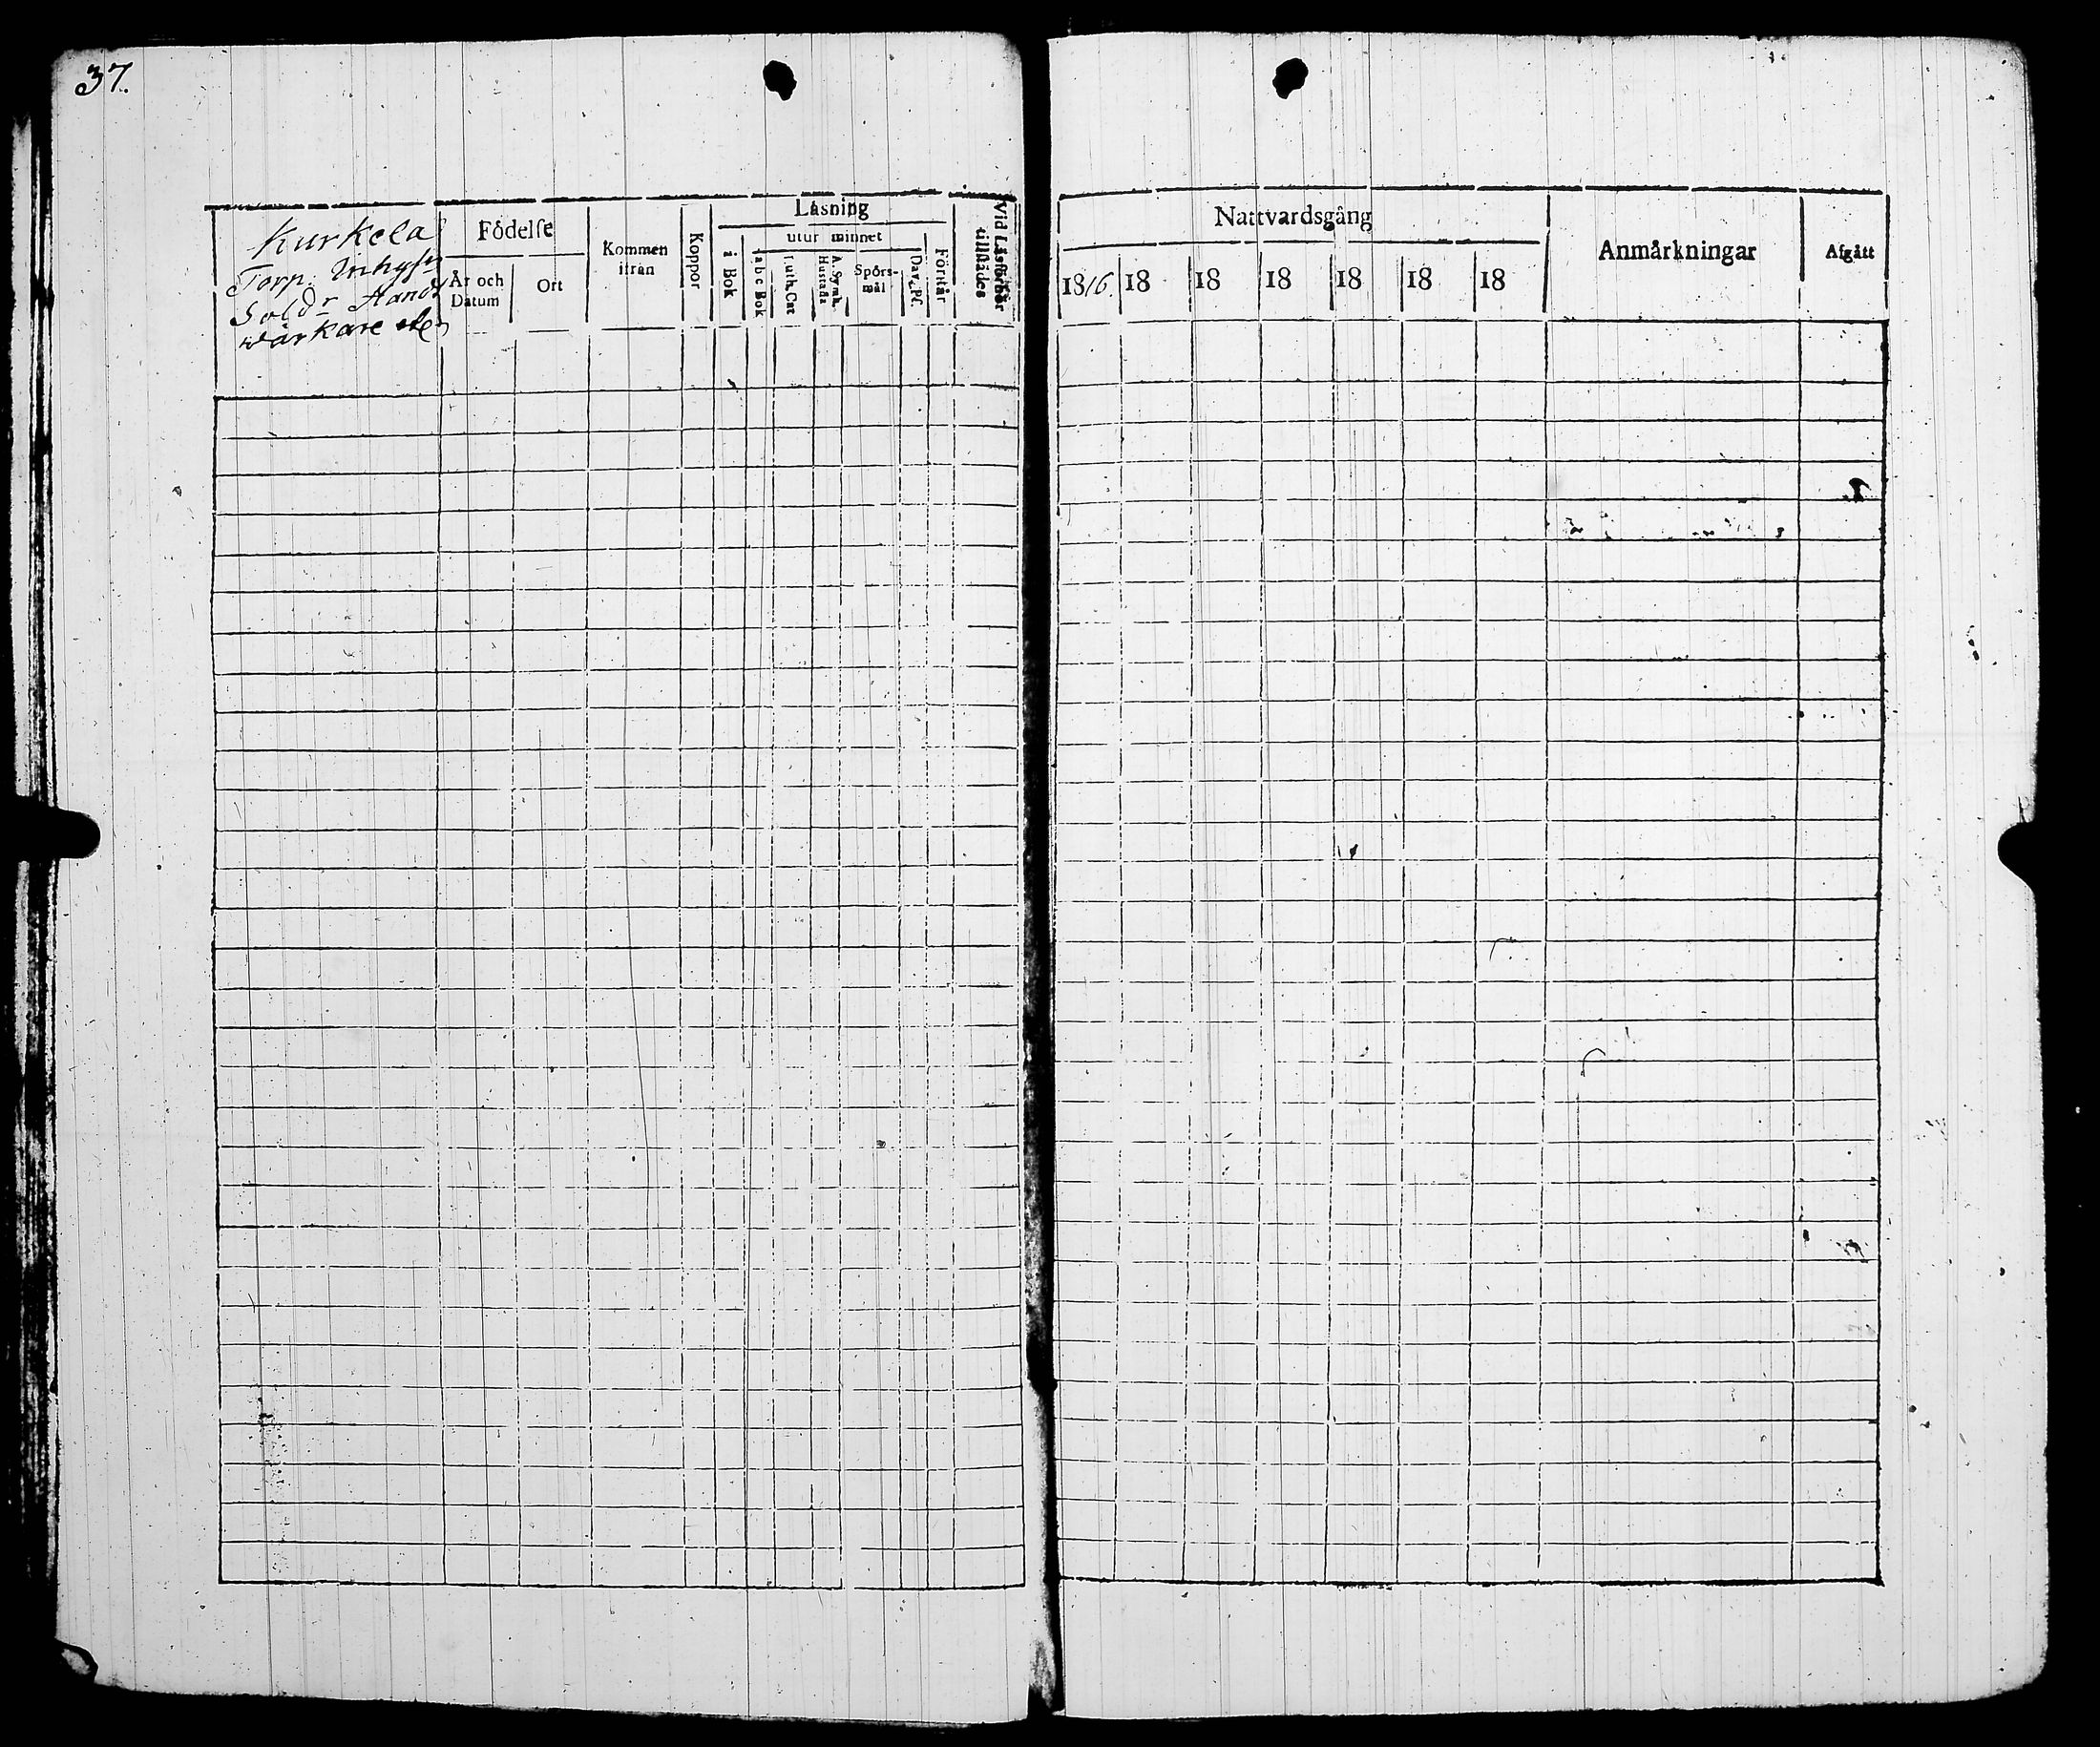 37.
Kurkela
Torp. Inhyst.
Soldr Hand
värkare etc
Födelse
År och Datum
Ort
Kommen ifrån
Koppor
Läsning
i Bok
utur minnet
a b c Bok
Luth. Cat
A. Symb. Hustafla
Spörs-mål
Dav. Ps.
Förstår
Vid Läsförhör tillstädes
Nattvardsgång
1816. 18 18 18 18 18 18
Anmärkningar
Afgått